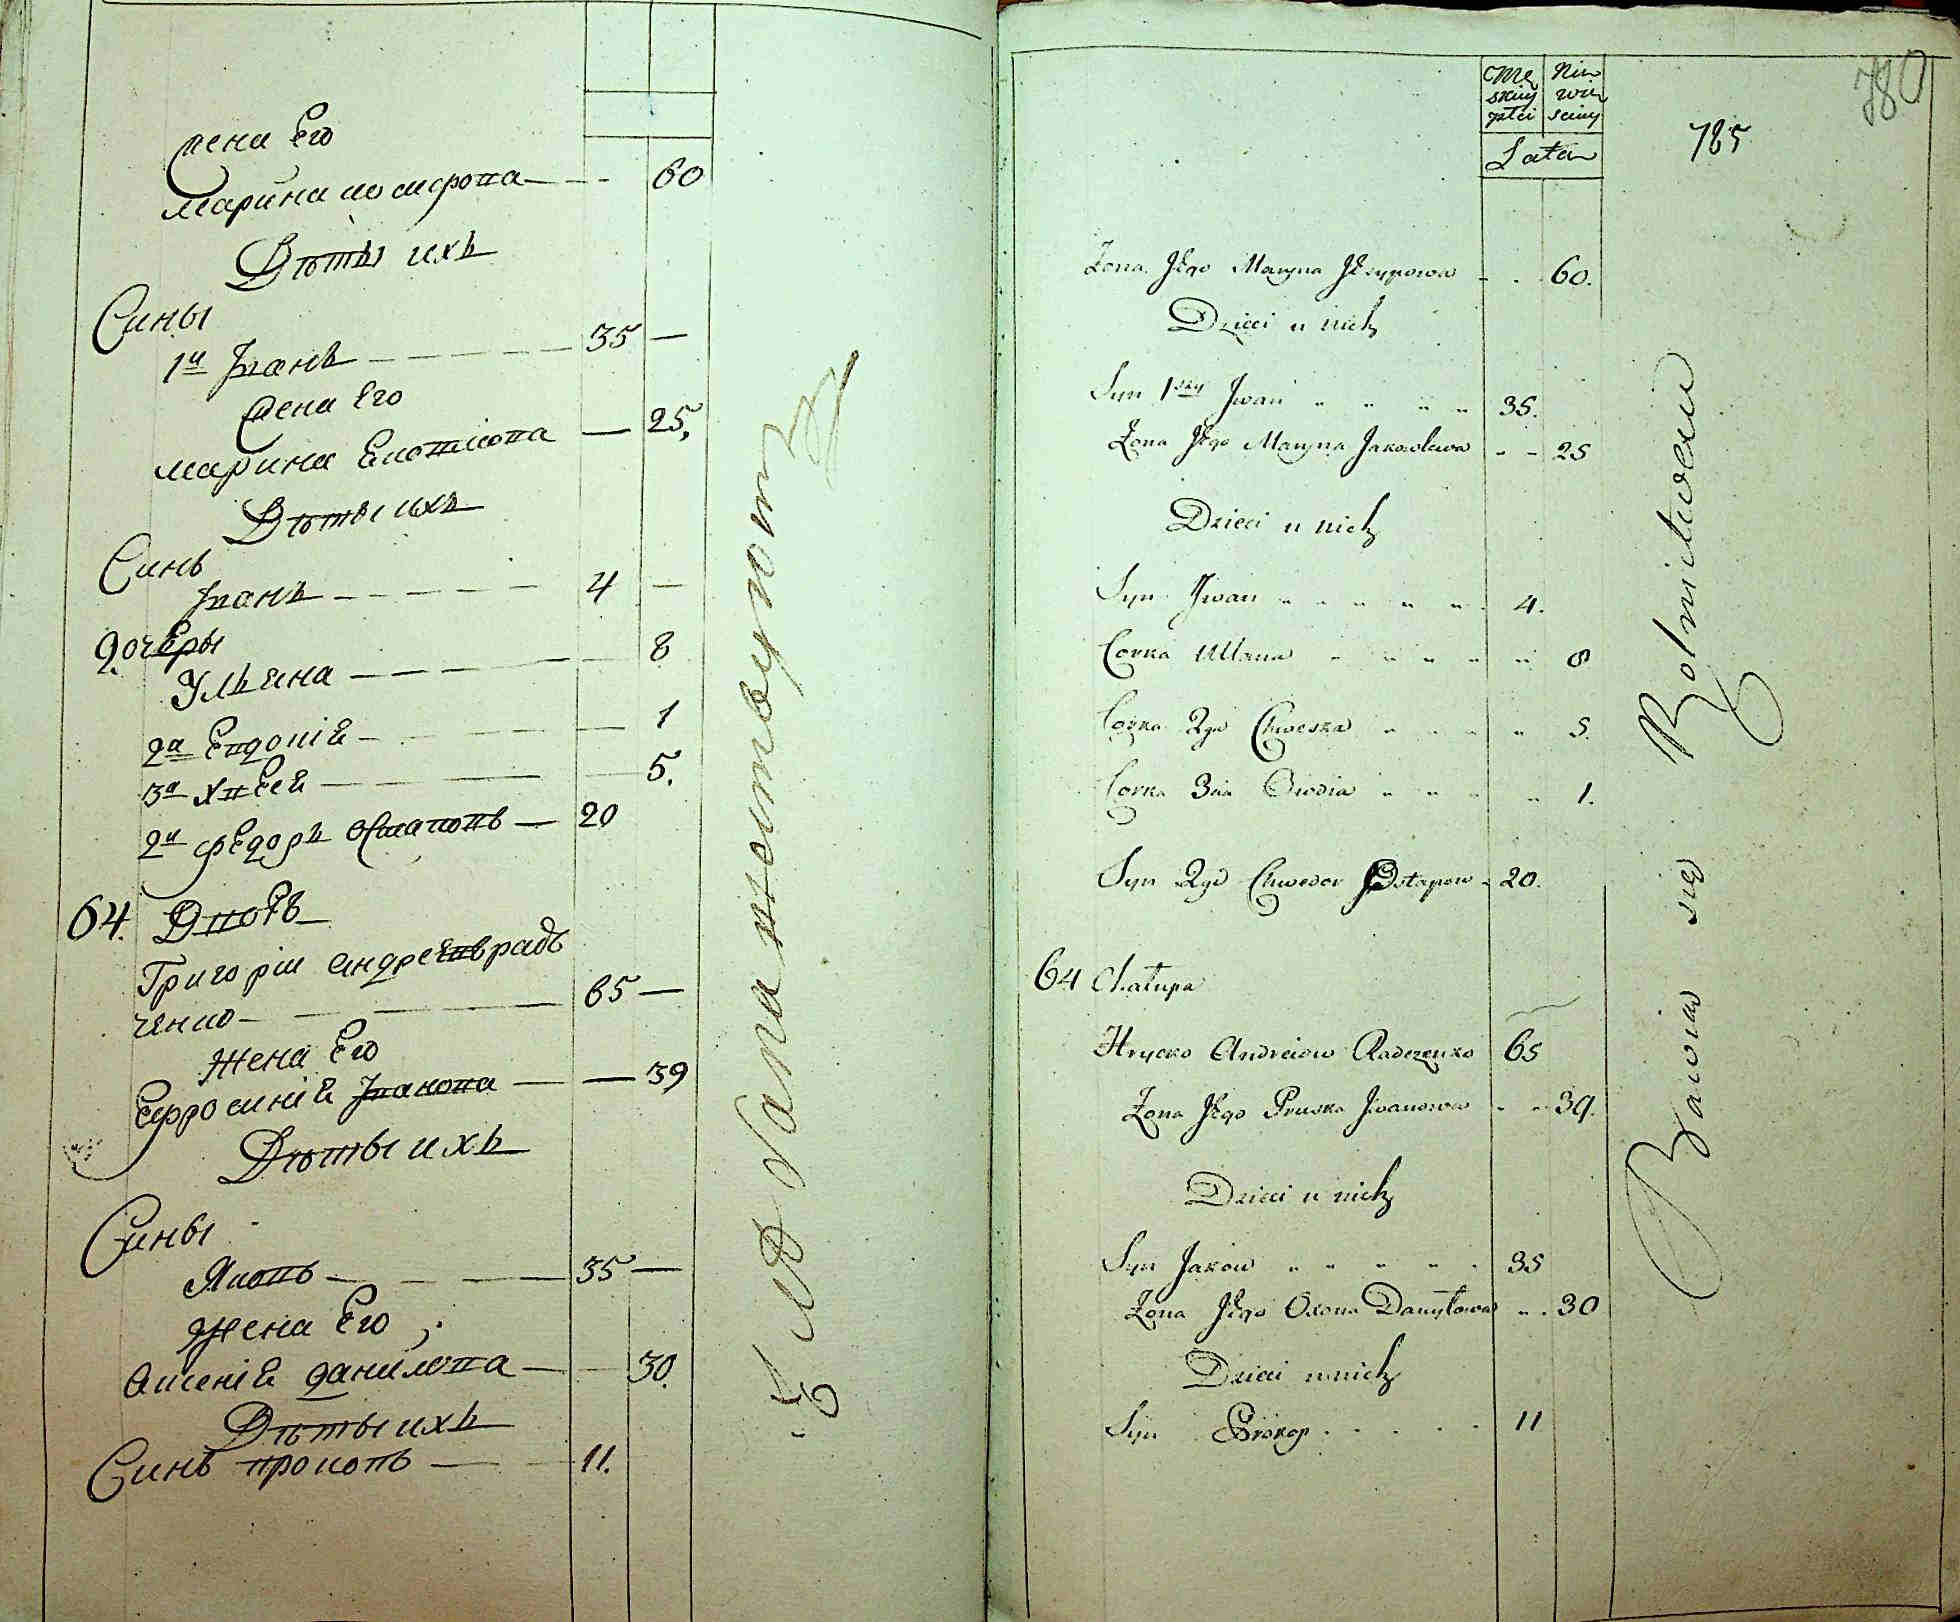 жена Его
марина
60
Дѣты ихъ
Сины
1й Іванъ 35 —
жена Его
марина 25,
Дѣты ихъ
Синъ
Іванъ 4 —
дочеры
Ульяна 8
2а Евдокія 1
3а Хвеся 5.
2й федоръ Остаповъ 20
64. Дворъ
Григорій андреевъ радъ
ченко 65 —
жена Его
Ефросинія Іванова — 39
Дѣты ихъ
Сины
Яковъ 35 —
жена Его
Оксенія данилова 30.
Дѣты ихъ
Синъ прокопъ 11.
780
785
Męskiey płci
Niewieściey
Lata
Zona Jego Maryna 60.
Dzieci u nich
Syn 1szy Jwan 35.
Zona Jego Maryna Jakowlewa 25
Dzieci u nich
Syn Jwan 4.
Corka Ullana 8
Corka 2ga Chweska 5.
Corka 3cia Owdia 1.
Syn 2gi Chwedor Ostapow 20.
64 Chałupa
Hrycko Andreiow Radczenko 65
Zona Jego Pruska Jwanowa 39.
Dzieci u nich
Syn Jakow 35
Zona Jego Oxena Daniłowa 30
Dzieci u nich
Syn Prokop 11
Bawią się Rolnictwem